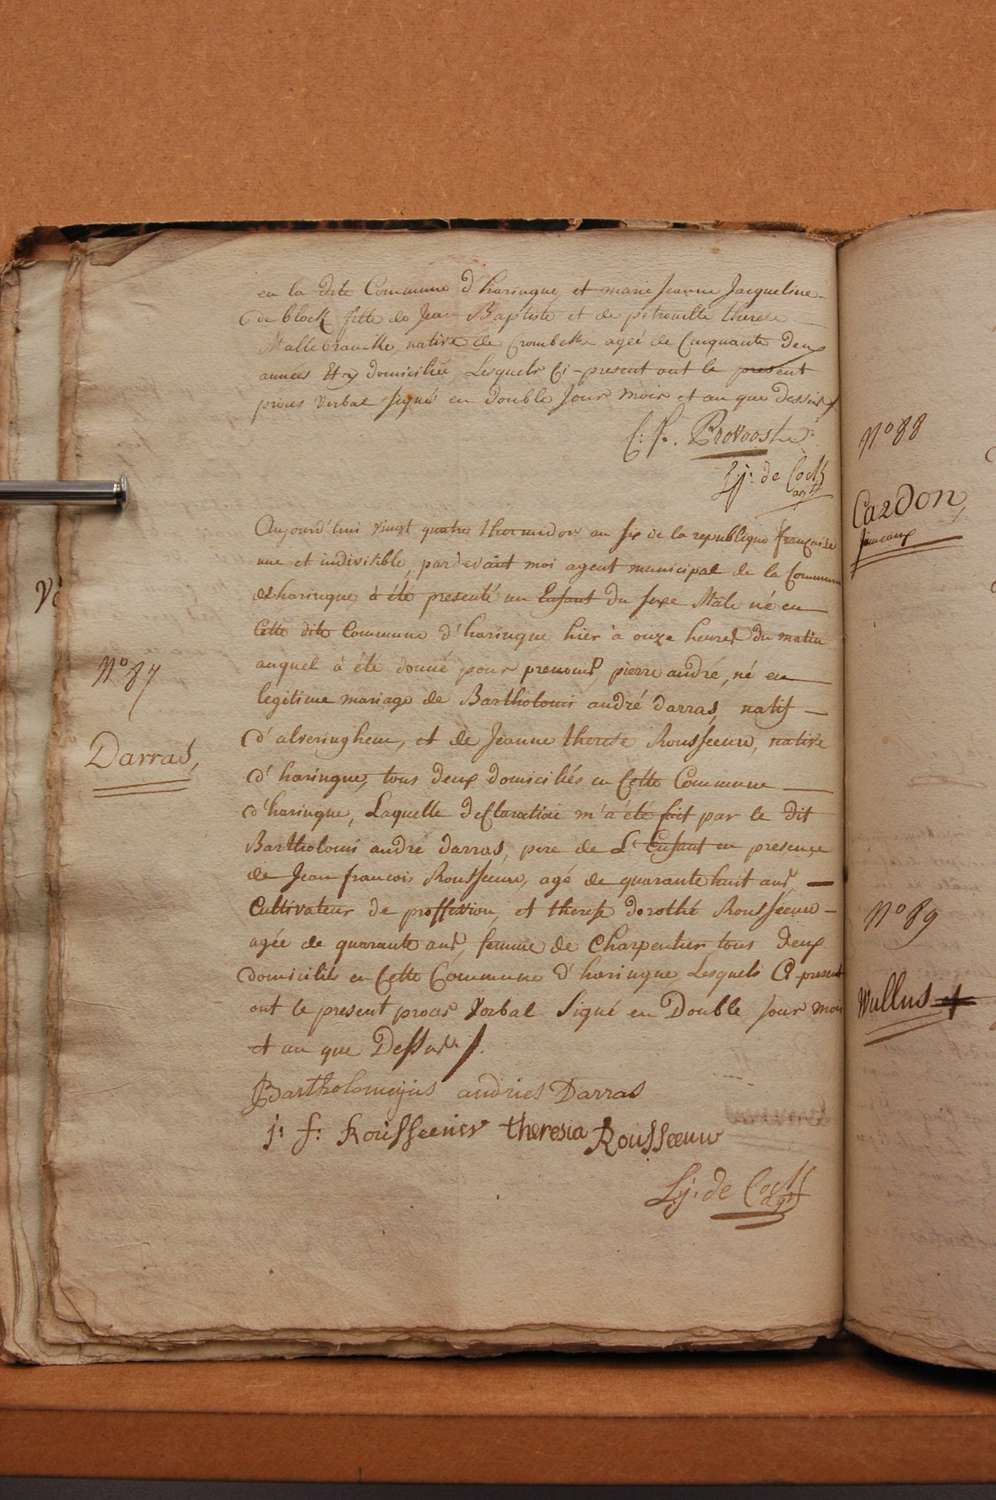 en la dite Commune d'haringue et marie Jeanne Jacqueline
de block fille de Jean Baptiste et de petronille therese
Mallebrancke native de Crombeke agée de Cinquante deux
années et y domiciliée Lesquels Ci-present ont le present
proces verbal signé en double Jour mois et an que dessus
C: F. Provoost
L: j: de Cock
agt
Aujourd'hui vingt quatre thermidor an six de la republique française
une et indivisible, par devant moi agent municipal de la Commune
d'haringue à été presenté un Enfant du sexe Male né en
Cette dite Commune d'haringue hier à onze heures du matin
auquel à été donné pour prenoms pierre andré, né en
legitime mariage de Bartholomi andré darras, natif
d'alveringhem, et de Jeanne therese Rousseeuw, native
d'haringue, tous deux domiciliés en Cette Commune
d'haringue, Laquelle declaration m'a été fait par le dit
Bartholomi andré darras, pere de L'Enfant en presence
de Jean francois Rousseeuw, agé de quarante huit ans,
Cultivateur de proffession, et therese dorothé Rousseeuw
agée de quarante ans, femme de Charpentier tous deux
domiciliés en Cette Commune d'haringue Lesquels Ci present
ont le present proces verbal Signé en Double Jour mois
et an que Dessus
Bartholomeijus andries Darras
j: f: Rousseeuw theresia Rousseeuw
L: j: de Cock
agt
N° 87
Darras,
N° 88
Cardon,
jumeaux
N° 89
Wullus